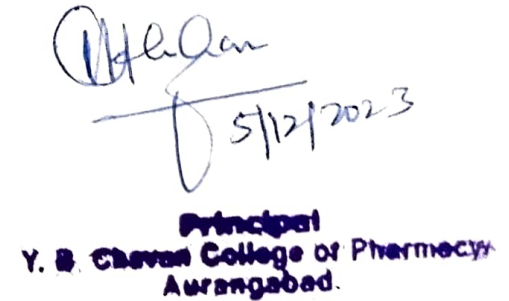 5/12/2023
Principal
Y. B. Chavan College of Pharmacy
Aurangabad.